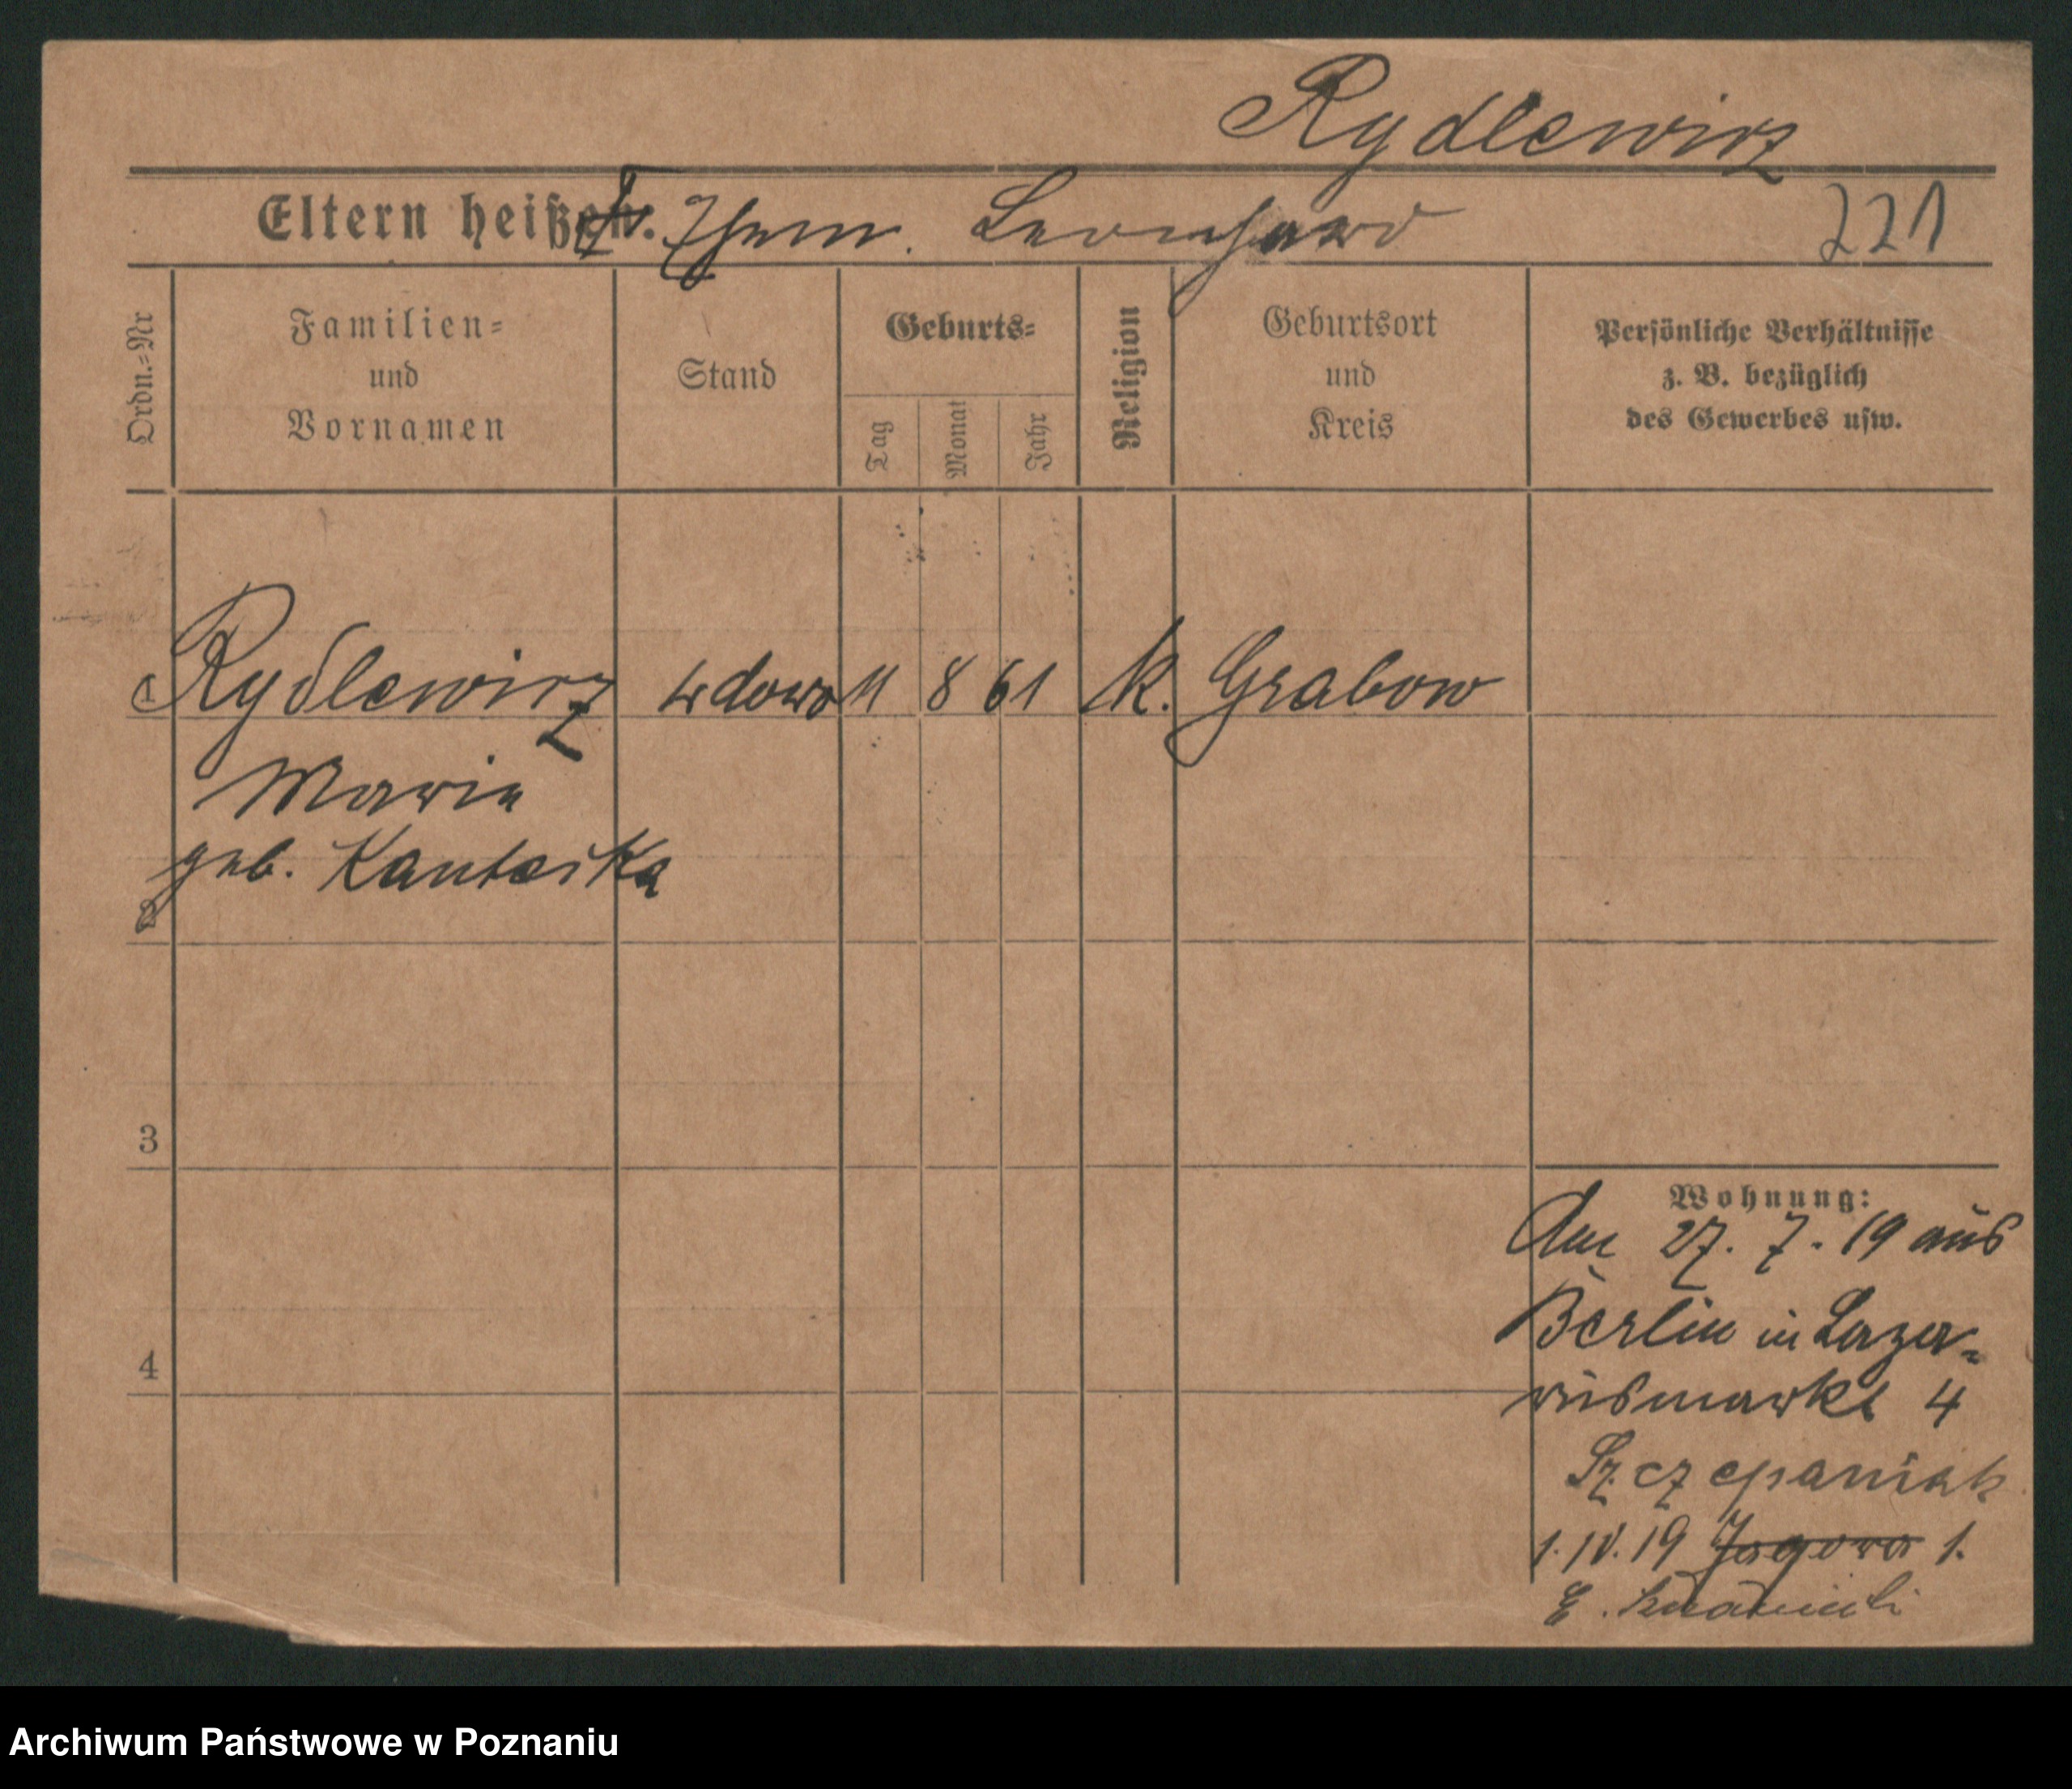 Rydlewicz
Eltern heißen. Ehem. Leonhard 221
Ordn.=Nr
Familien=
und
Vornamen
Stand
Geburts=
Tag
Monat
Jahr
Religion
Geburtsort
und
Kreis
Persönliche Verhältnisse
z. B. bezüglich
des Gewerbes usw.
1 Rydlewicz wdowa 11 8 61 k. Grabow
Maria
geb. Kantecka
2
3
4
Wohnung:
Am 27. 7. 19 aus
Berlin in Laza=
rusmarkt 4
Szczepaniak
1. IV. 19 Jagowa 1.
E.